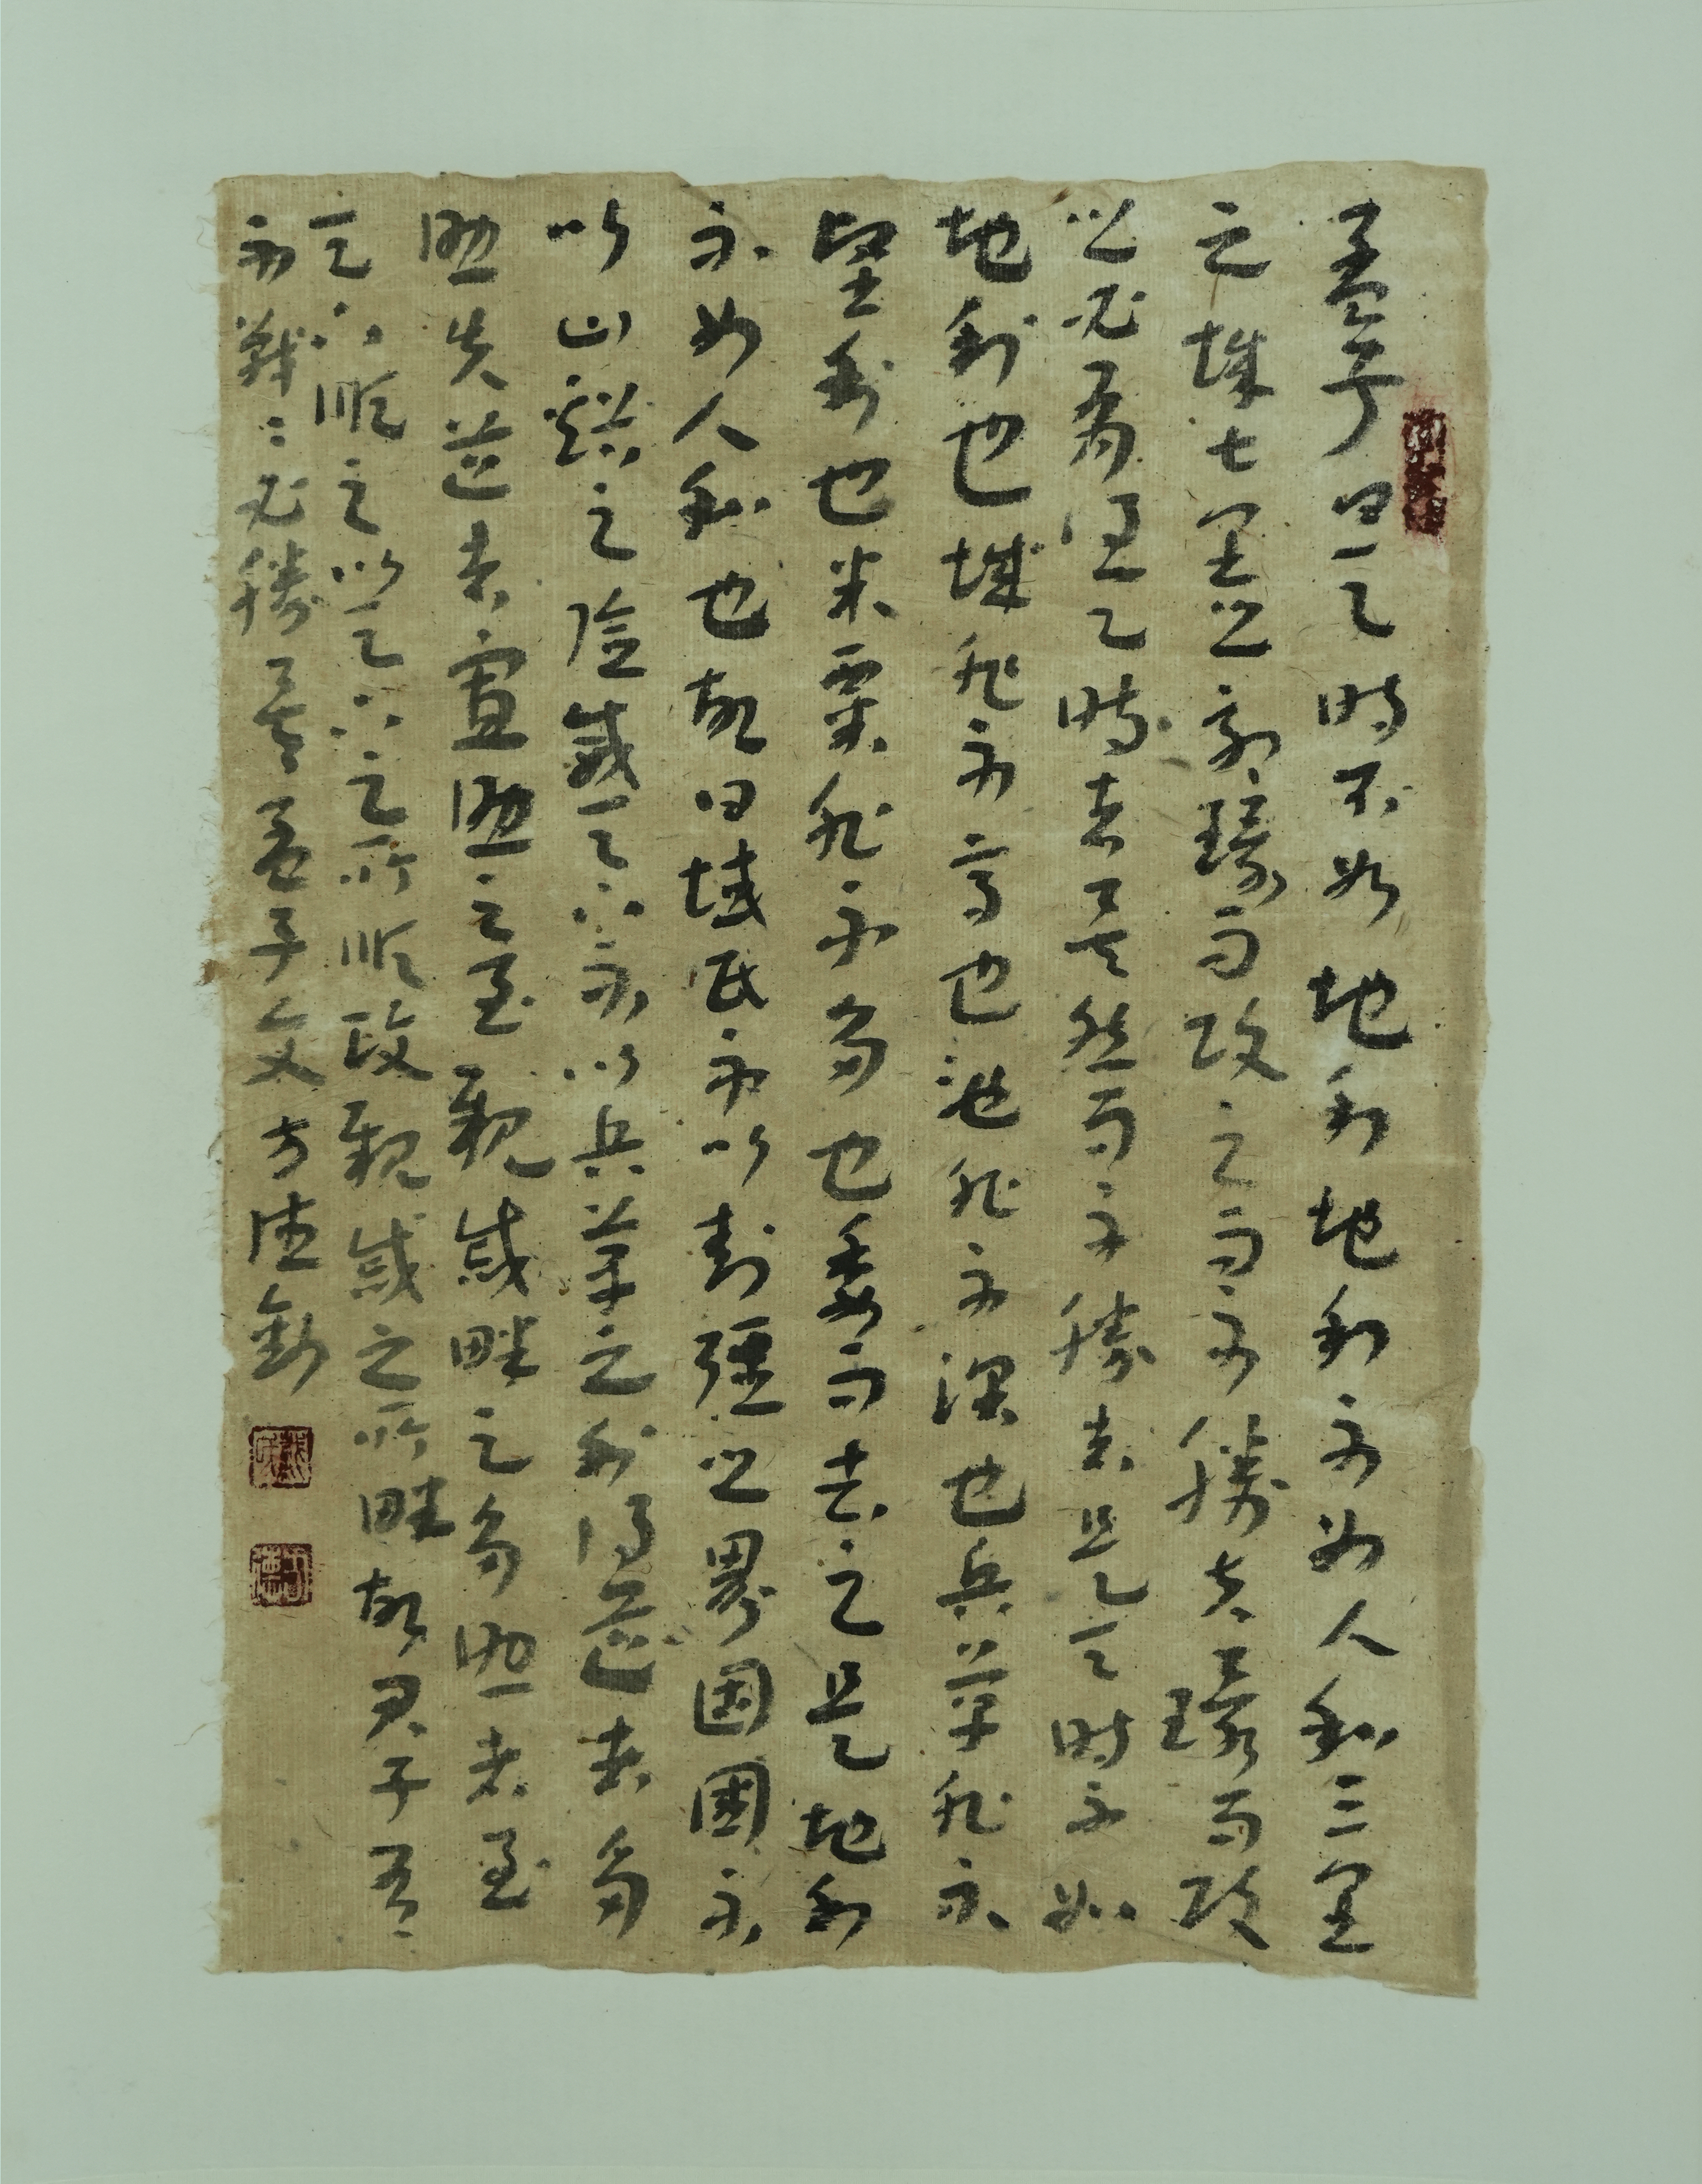 孟子曰天時不如地利地利不如人和三里
之城七里之郭環而攻之而不勝夫環而攻
之必有得天時者矣然而不勝者是天時不如
地利也城非不高也池非不深也兵革非不
堅利也米粟非不多也委而去之是地利
不如人和也故曰域民不以封疆之界固國不
以山谿之險威天下不以兵革之利得道者多
助失道者寡助之至親戚畔之多助者至
天下順之以天下之所順攻親戚之所畔故君子有
不戰〻必勝矣孟子文方德